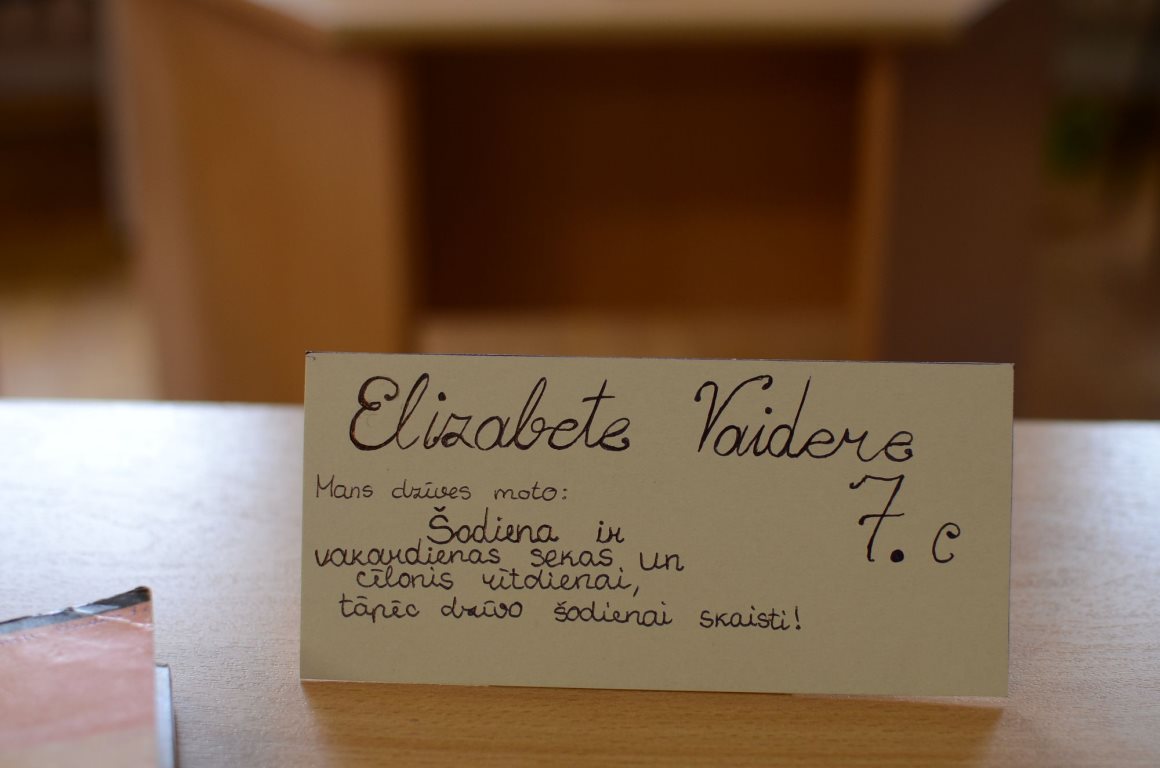 Elizabete Vaidere
7. c
Mans dzīves moto:
Šodiena ir
vakardienas sekas un
cīlonis rītdienai,
tāpēc dzīvo šodienai skaisti!